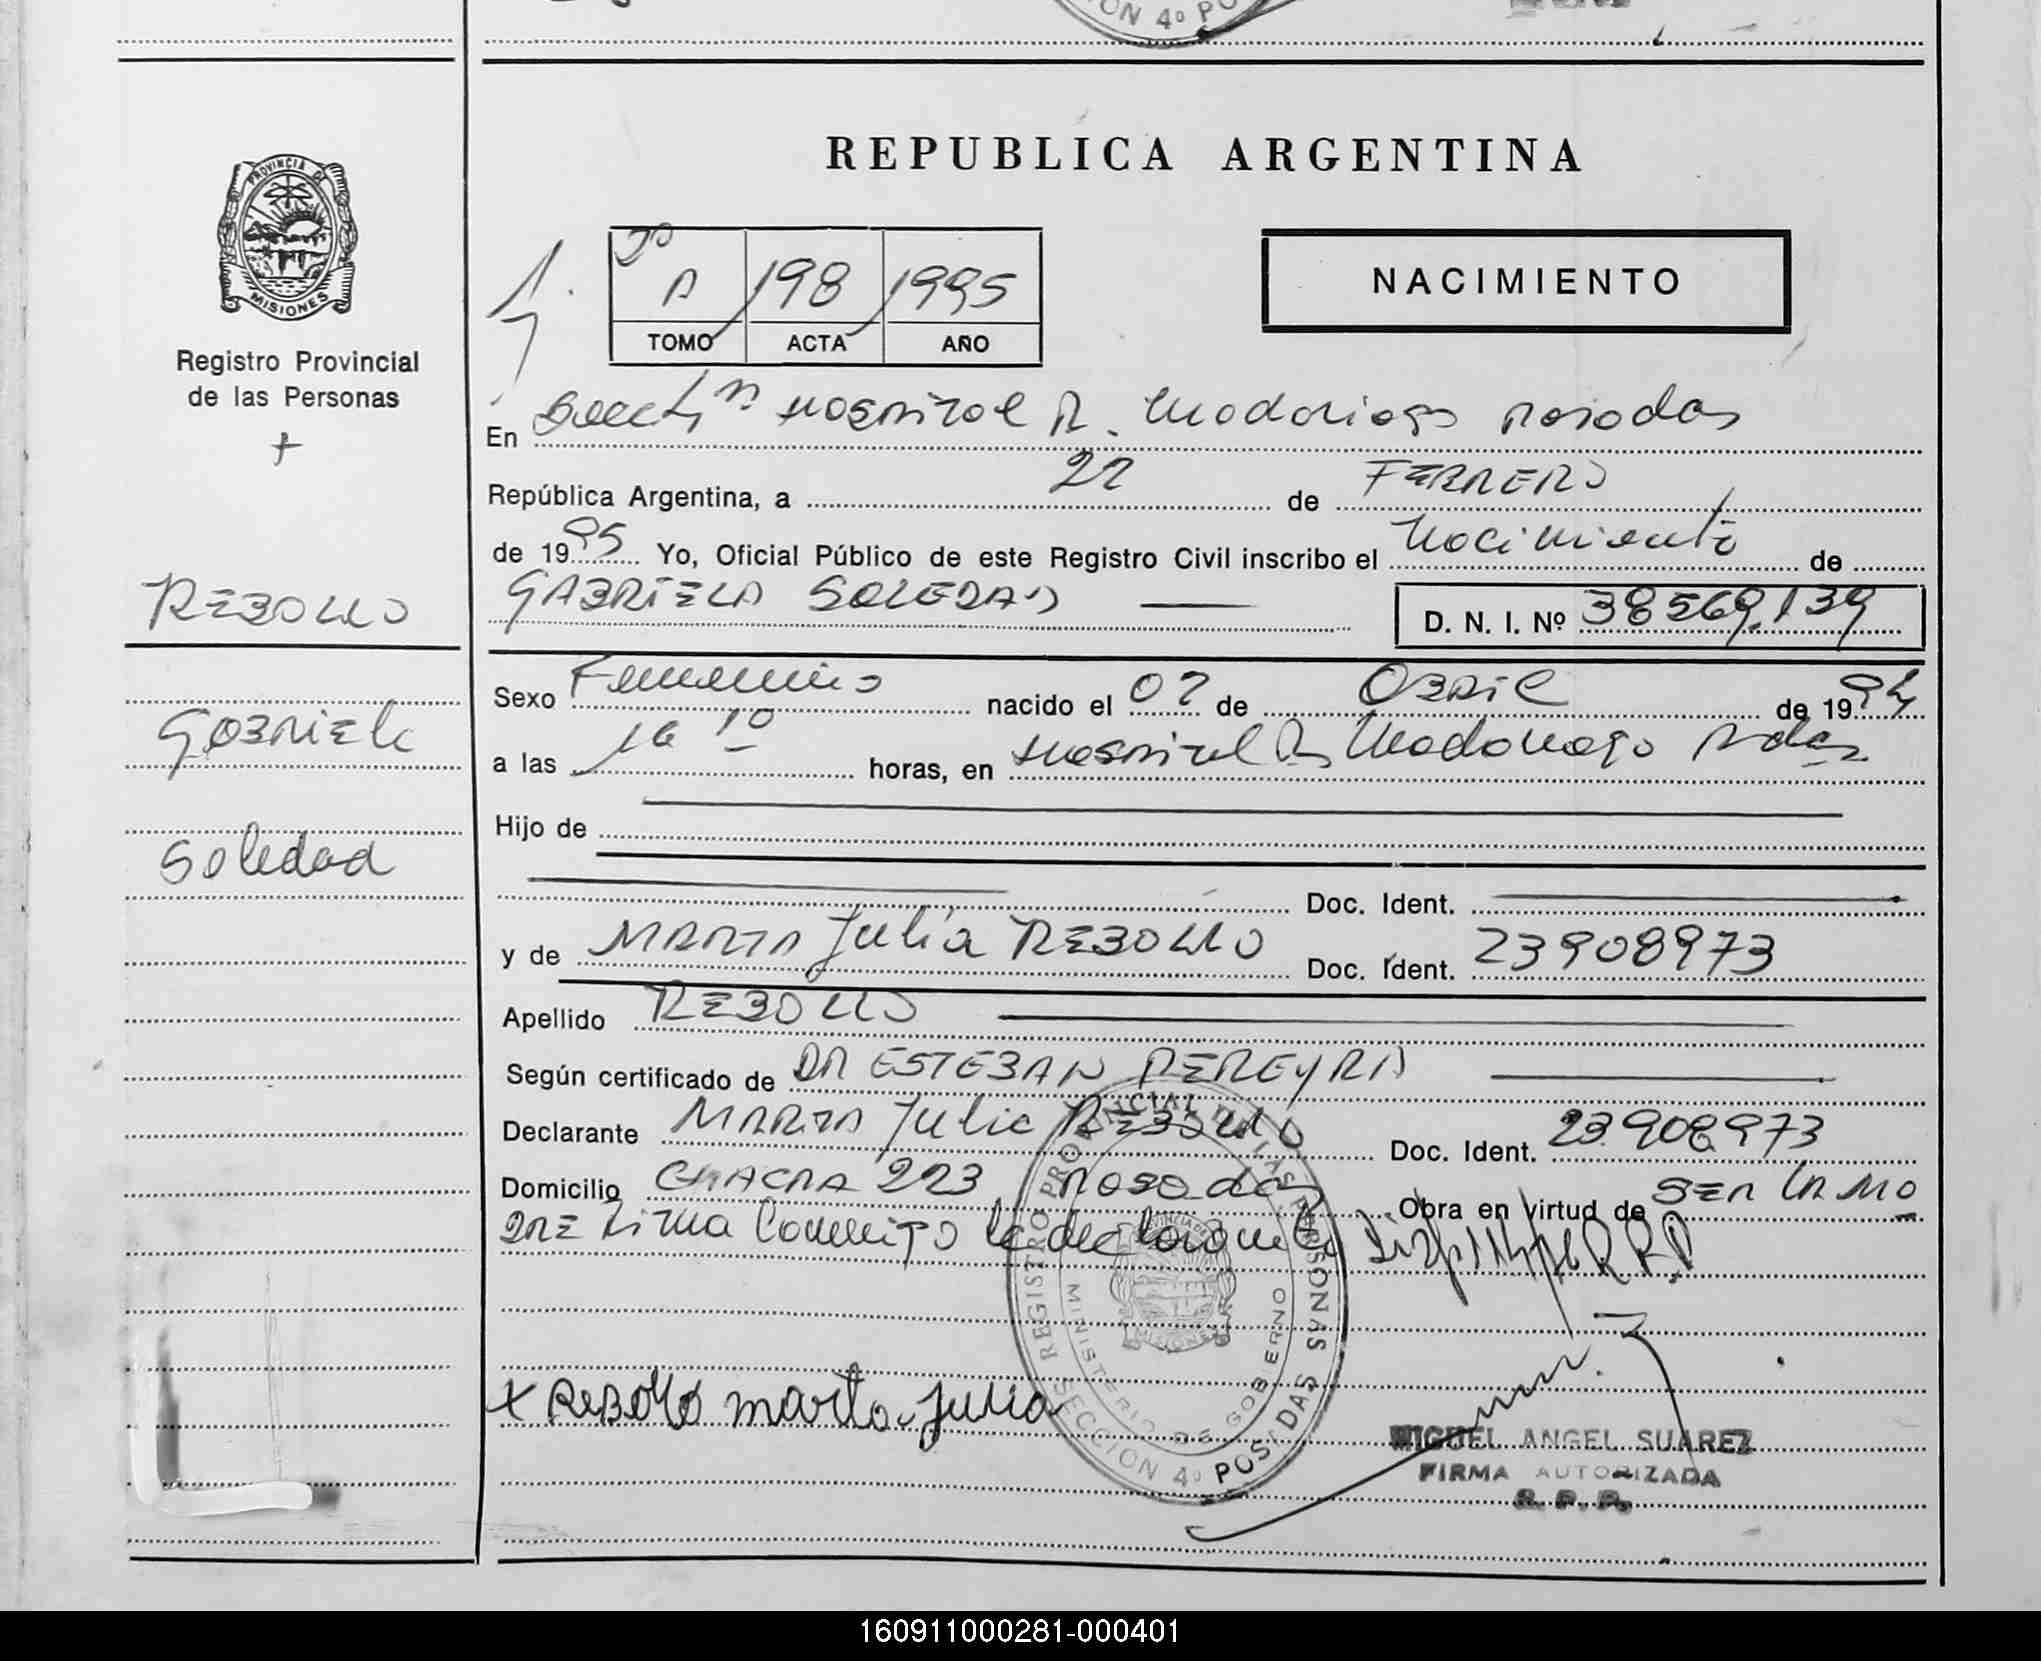 REPUBLICA ARGENTINA
PROVINCIA DE
MISIONES
Registro Provincial
de las Personas
Tº A 198 1995
TOMO ACTA AÑO
NACIMIENTO
En Hospital R. Madariaga Posadas
República Argentina, a 22 de FEBRERO
de 1995 Yo, Oficial Público de este Registro Civil inscribo el Nacimiento de
GABRIELA SOLEDAD
D. N. I. Nº 38569.139
REBOLLO
Gabriela
Soledad
Sexo Femenino nacido el 07 de ABRIL de 1994
a las 16 10 horas, en Hospital R. Madariaga Pdas
Hijo de
Doc. Ident.
y de MARTA Julia REBOLLO Doc. Ident. 23908973
Apellido REBOLLO
Según certificado de DR ESTEBAN PEREYRA
Declarante MARTA Julia REBOLLO Doc. Ident. 23.908973
Domicilio CHACRA 223 Posadas Obra en virtud de SER LA MA
DRE Firma Conmigo la declarante
REGISTRO PROVINCIAL DE LAS PERSONAS
MINISTERIO DE GOBIERNO
SECCION 4º POSADAS
+ Rebollo marta Julia
MIGUEL ANGEL SUAREZ
FIRMA AUTORIZADA
R. P. P.
160911000281-000401